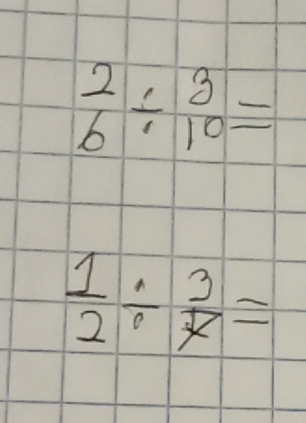 2/6 ÷ 3/10 =
1/2 ÷ 3/7 =